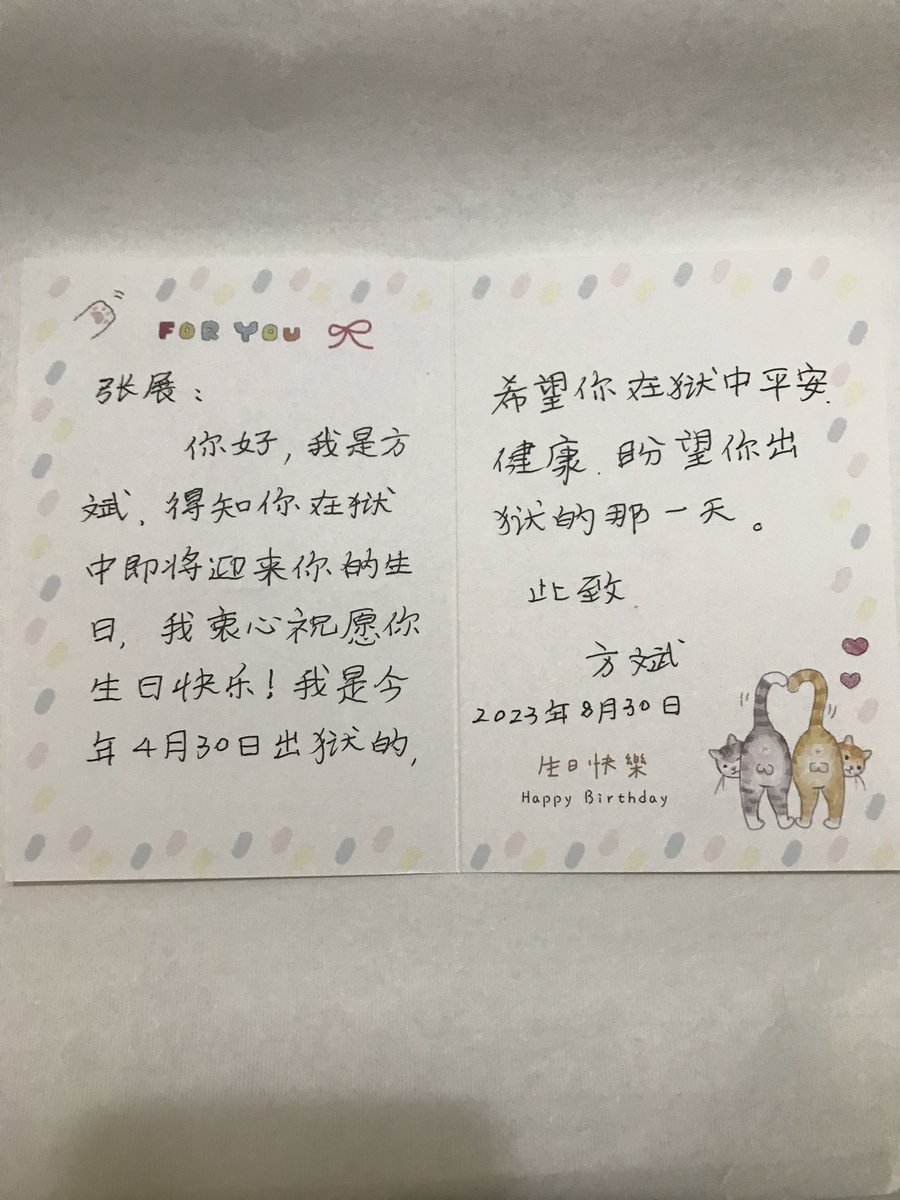 FOR YOU
张展：
你好，我是方
斌、得知你在狱
中即将迎来你的生
日，我衷心祝愿你
生日快乐！我是今
年4月30日出狱的，
希望你在狱中平安、
健康、盼望你出
狱的那一天。
此致
方斌
2023年8月30日
生日快樂
Happy Birthday